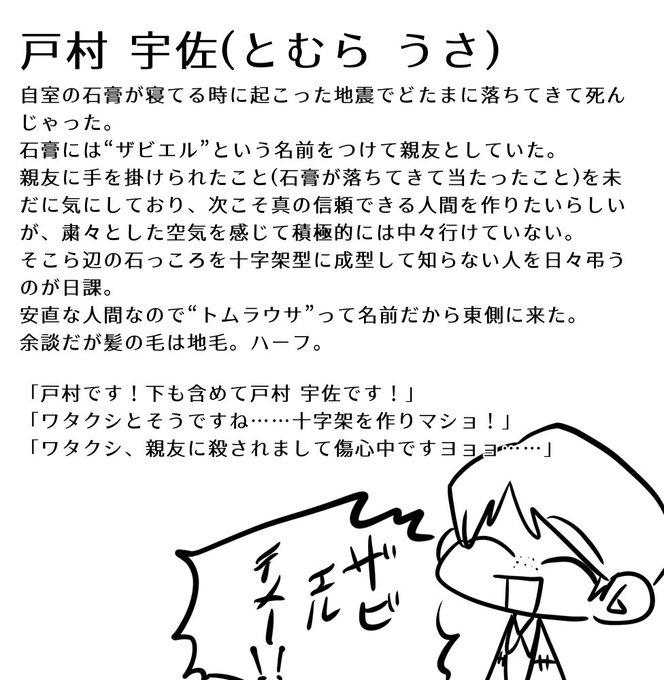 戸村 宇佐(とむら うさ)
自室の石膏が寝てる時に起こった地震でどたまに落ちてきて死ん
じゃった。
石膏には“ザビエル”という名前をつけて親友としていた。
親友に手を掛けられたこと(石膏が落ちてきて当たったこと)を未
だに気にしており、次こそ真の信頼できる人間を作りたいらしい
が、粛々とした空気を感じて積極的には中々行けていない。
そこら辺の石っころを十字架型に成型して知らない人を日々弔う
のが日課。
安直な人間なので“トムラウサ”って名前だから東側に来た。
余談だが髪の毛は地毛。ハーフ。
「戸村です！下も含めて戸村 宇佐です！」
「ワタクシとそうですね……十字架を作りマショ！」
「ワタクシ、親友に殺されまして傷心中ですヨョョ……」
ザビ
エル
テメー!!